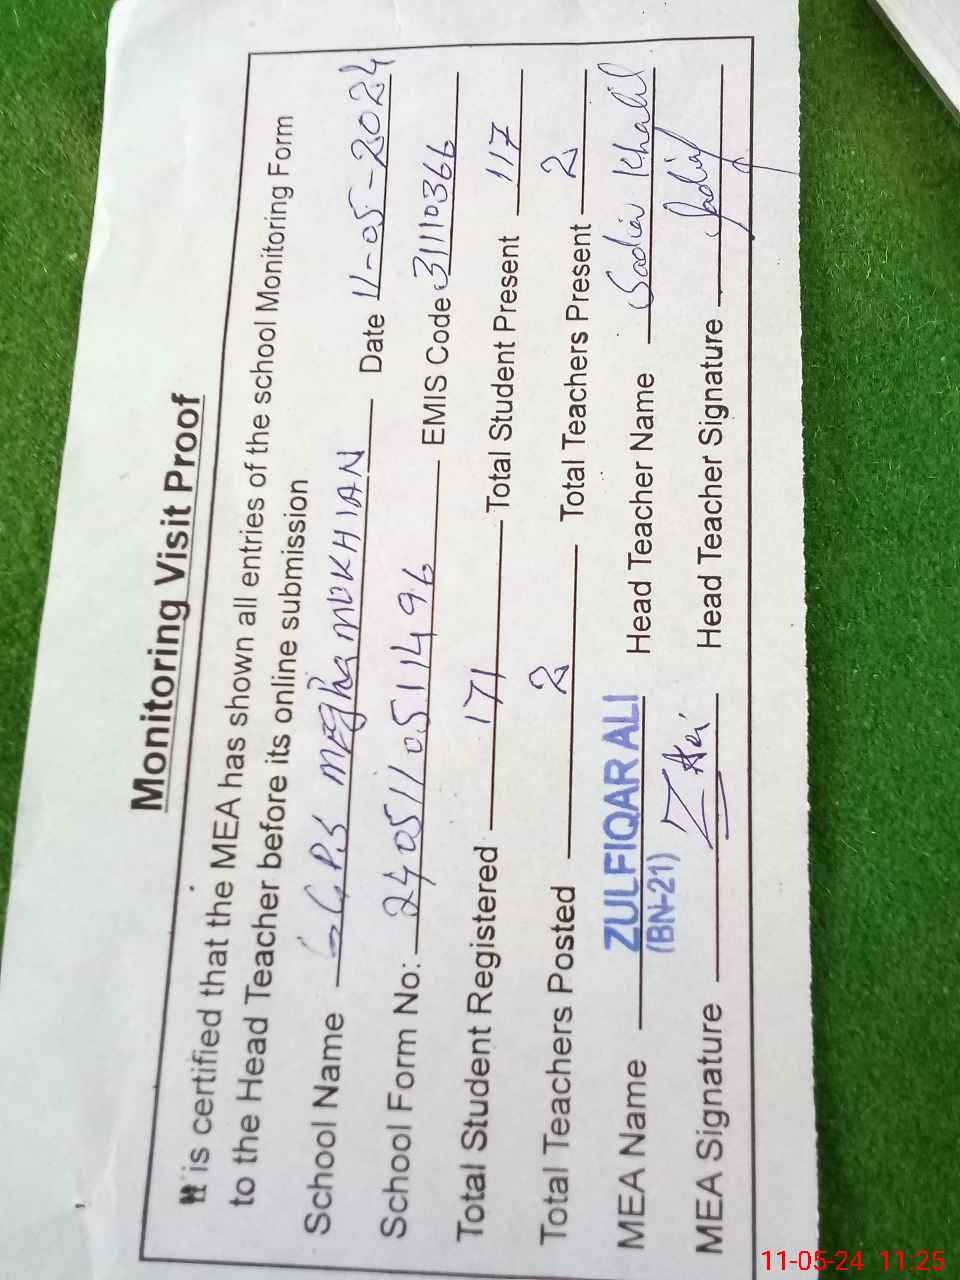 Monitoring Visit Proof
It is certified that the MEA has shown all entries of the school Monitoring Form
to the Head Teacher before its online submission
School Name GGPS Megha MUKHIAN Date 11-05-2024
School Form No: 240511051496 EMIS Code 31110366
Total Student Registered 171 Total Student Present 117
Total Teachers Posted 2 Total Teachers Present 2
MEA Name ZULFIQAR ALI Head Teacher Name Sadia Khalil
(BN-21)
MEA Signature Z Ali Head Teacher Signature Sadia
11-05-24 11:25